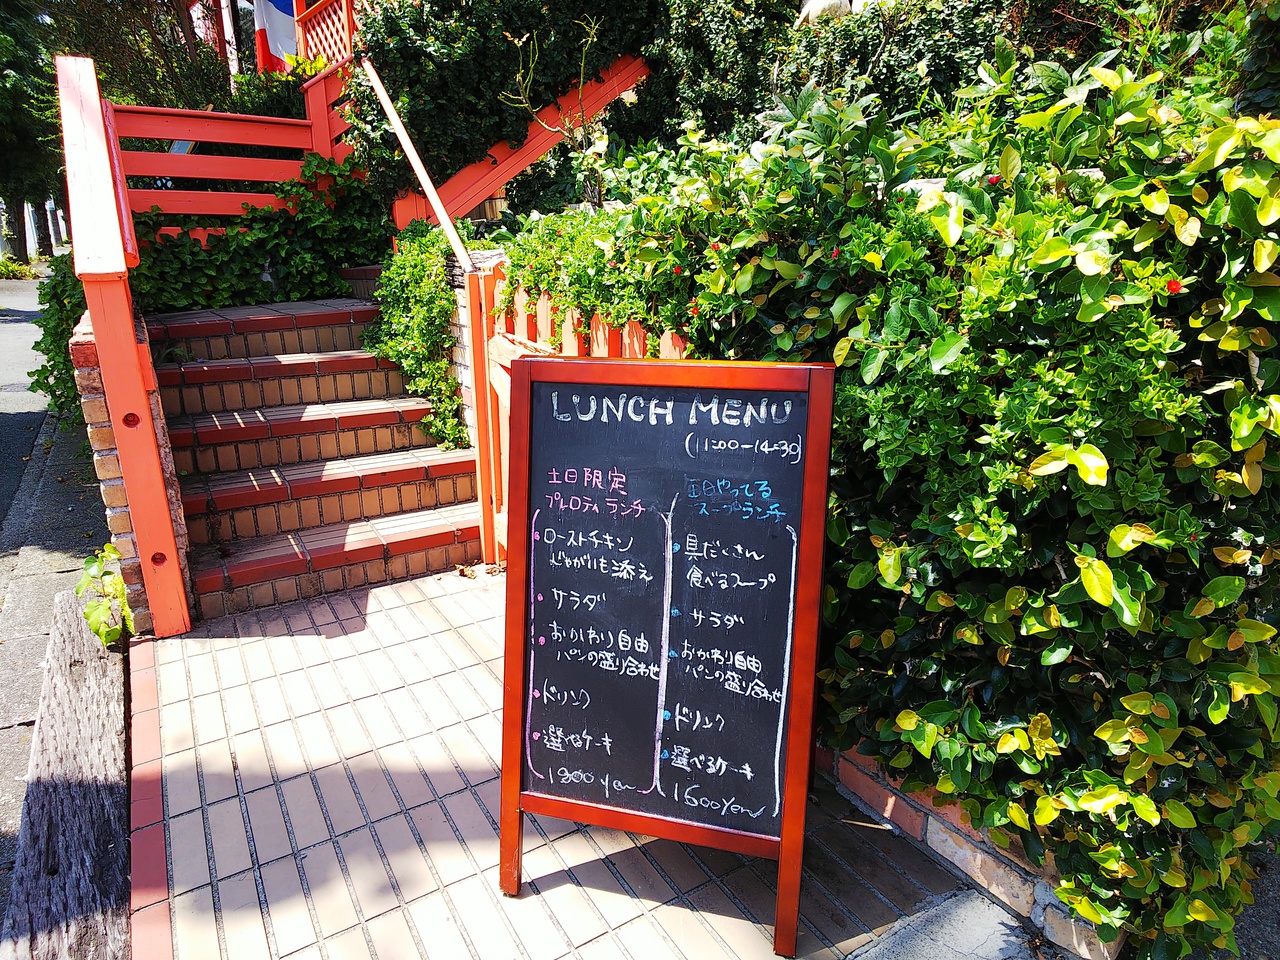 LUNCH MENU
(11:00-14:30)
土日限定
プレロティランチ
ローストチキン
じゃがいも添え
サラダ
おかわり自由
パンの盛り合わせ
ドリンク
選べるケーキ
1800 yen
毎日やってる
スープランチ
具だくさん
食べるスープ
サラダ
おかわり自由
パンの盛り合わせ
ドリンク
選べるケーキ
1600yen